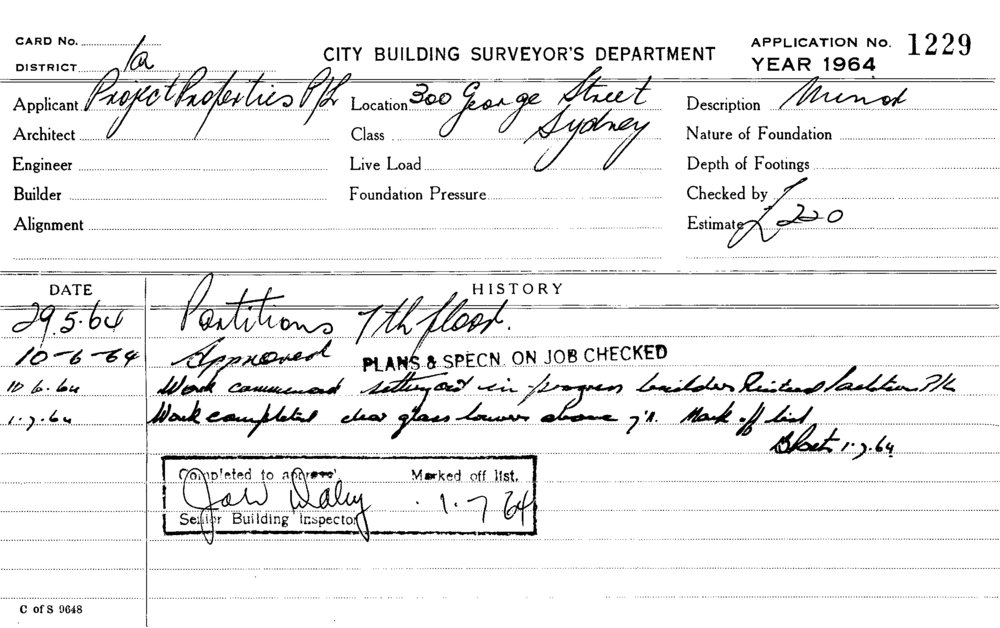 CARD No.
DISTRICT 1a
CITY BUILDING SURVEYOR'S DEPARTMENT
APPLICATION No. 1229
YEAR 1964
Applicant Project Properties P/L Location 300 George Street Description Minor
Architect Class Sydney Nature of Foundation
Engineer Live Load Depth of Footings
Builder Foundation Pressure Checked by
Alignment Estimate £220
DATE HISTORY
29.5.64 Partitions 7th floor.
10-6-64 Approved PLANS & SPECN. ON JOB CHECKED
10.6.64 Work commenced setting out in progress builder P/L
1.7.64 Work completed clear glass louvres above 7ft. Mark off list
1.7.64
Completed to approval. Marked off list.
John Daley 1.7.64
Senior Building Inspector
C of S 9648